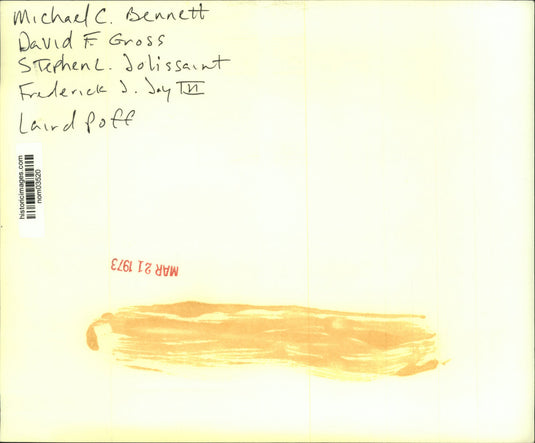 Michael C. Bennett
David F. Gross
Stephen L. Jolissaint
Frederick J. Joy
Laird Poff
historicimages.com
nom03520
MAR 21 1973